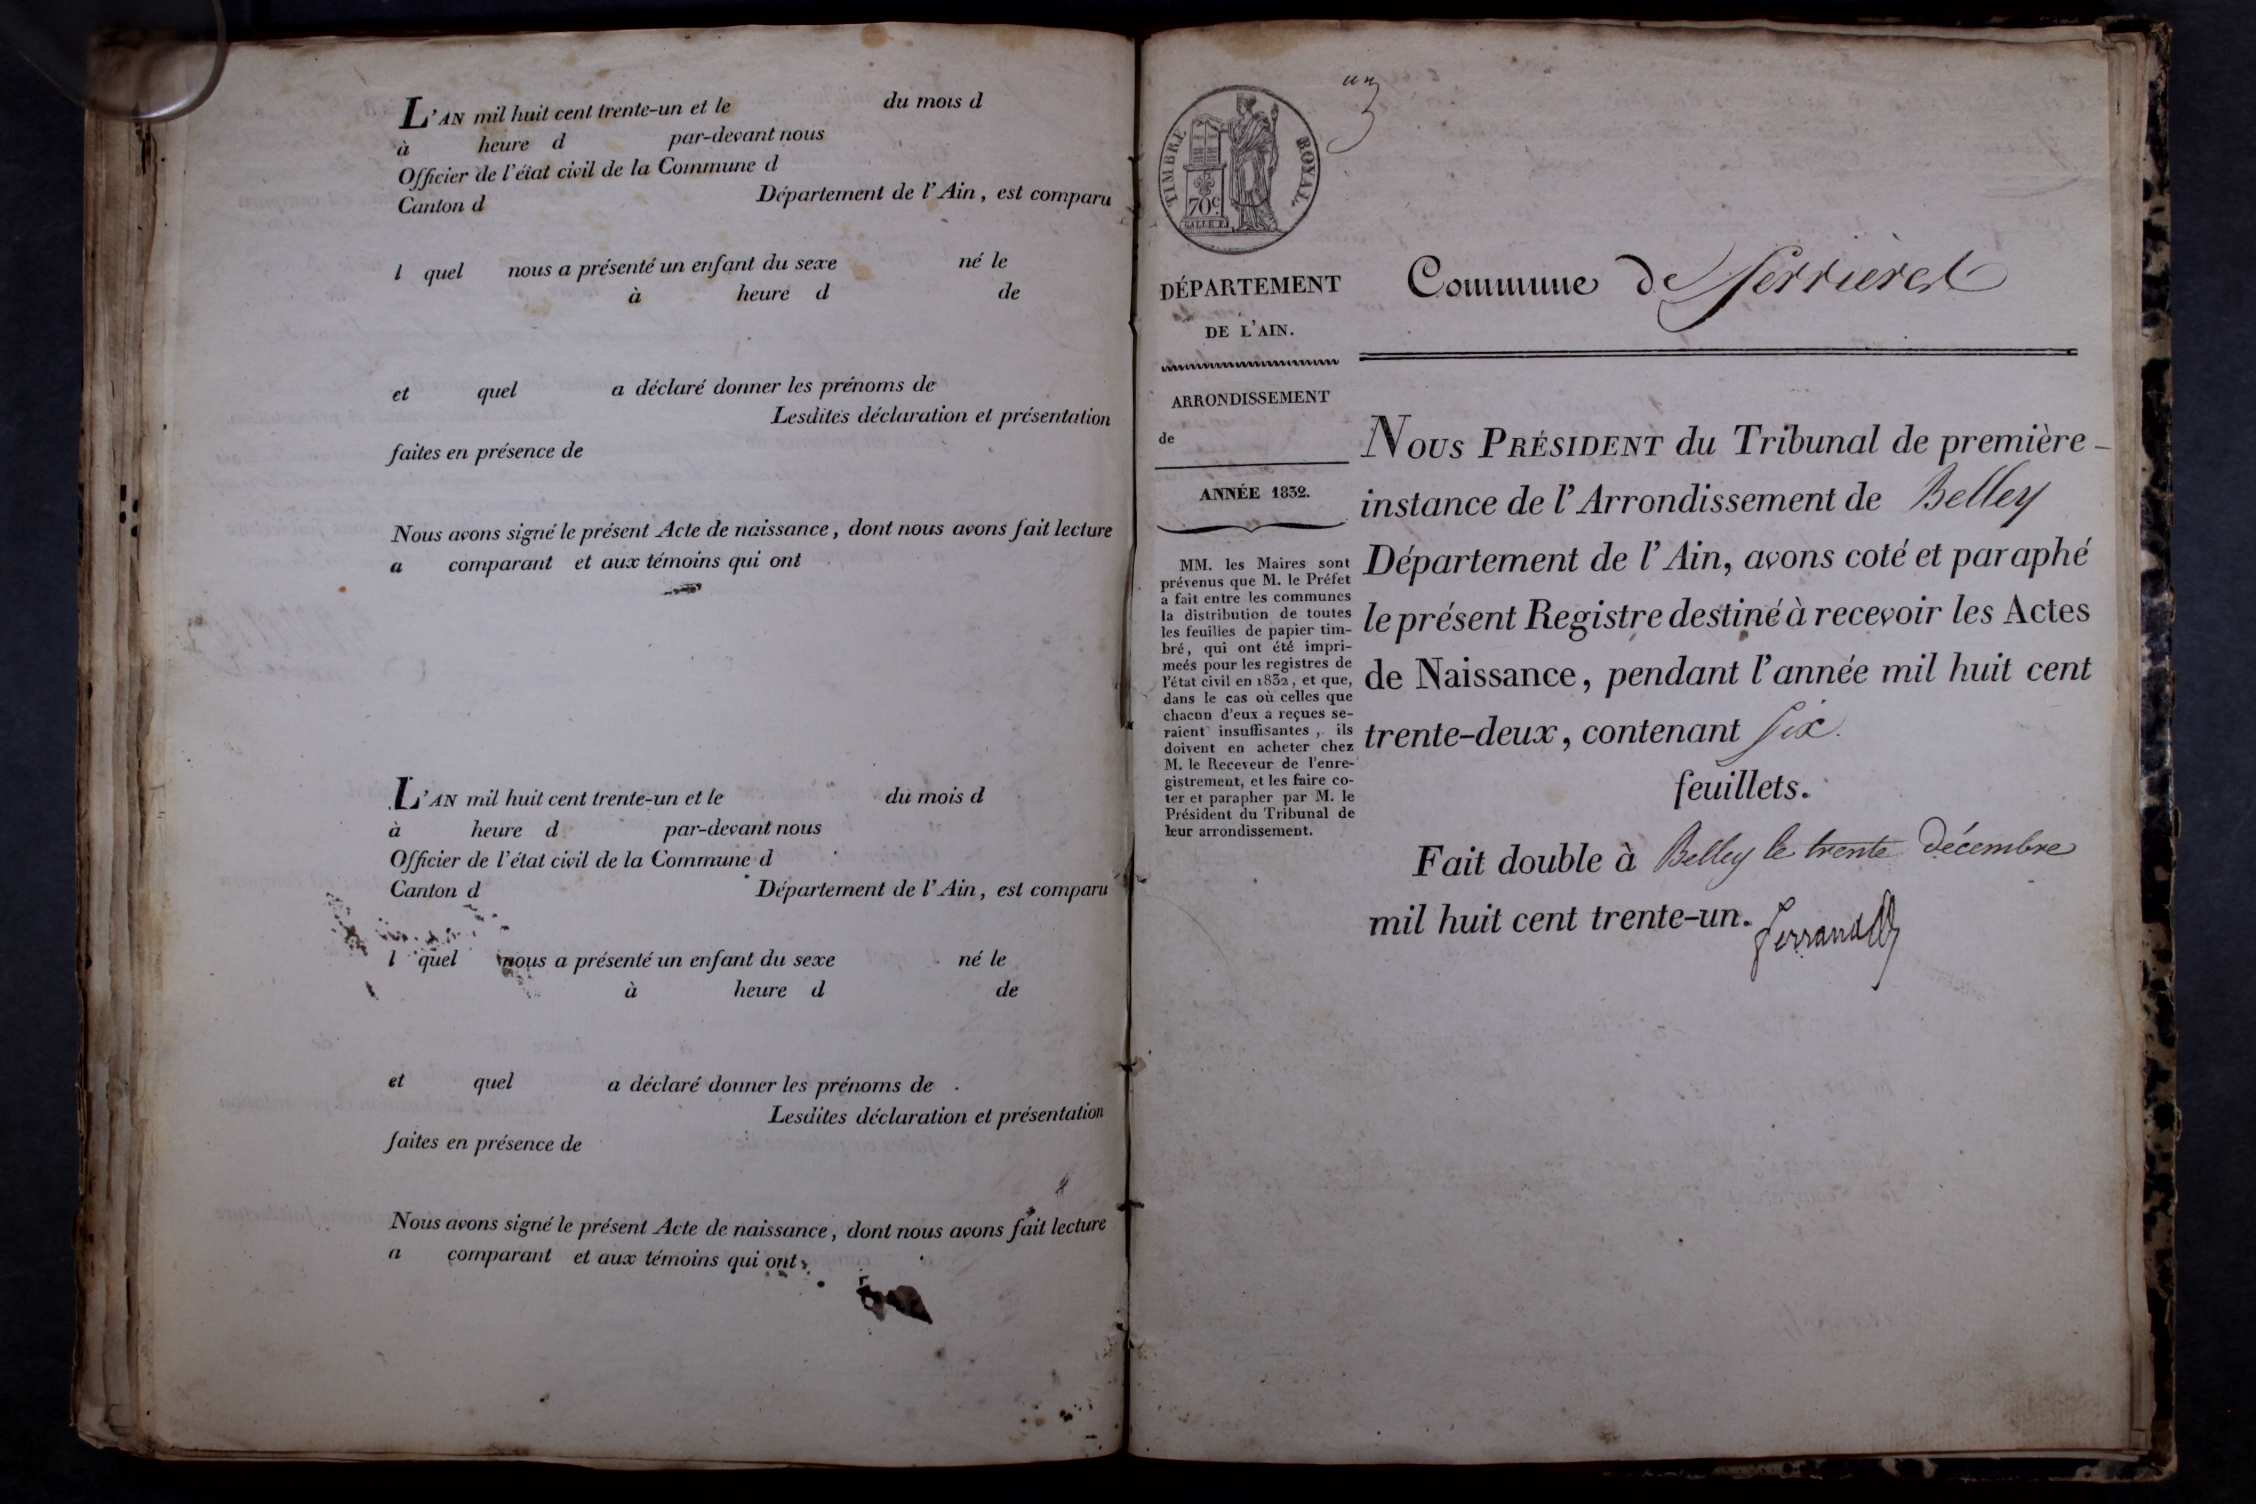 L'AN mil huit cent trente-un et le du mois d
à heure d par-devant nous
Officier de l'état civil de la Commune d
Canton d Département de l'Ain, est comparu
l quel nous a présenté un enfant du sexe né le
à heure d de
et quel a déclaré donner les prénoms de
Lesdites déclaration et présentation
faites en présence de
Nous avons signé le présent Acte de naissance, dont nous avons fait lecture
a comparant et aux témoins qui ont
L'AN mil huit cent trente-un et le du mois d
à heure d par-devant nous
Officier de l'état civil de la Commune d
Canton d Département de l'Ain, est comparu
l quel nous a présenté un enfant du sexe né le
à heure d de
et quel a déclaré donner les prénoms de
Lesdites déclaration et présentation
faites en présence de
Nous avons signé le présent Acte de naissance, dont nous avons fait lecture
a comparant et aux témoins qui ont
un
TIMBRE ROYAL.
70c
DÉPARTEMENT
DE L'AIN.
ARRONDISSEMENT
de
ANNÉE 1832.
MM. les Maires sont
prévenus que M. le Préfet
a fait entre les communes
la distribution de toutes
les feuilles de papier tim-
bré, qui ont été impri-
meés pour les registres de
l'état civil en 1832, et que,
dans le cas où celles que
chacun d'eux a reçues se-
raient insuffisantes, ils
doivent en acheter chez
M. le Receveur de l'enre-
gistrement, et les faire co-
ter et parapher par M. le
Président du Tribunal de
leur arrondissement.
Commune de Serrières
NOUS PRÉSIDENT du Tribunal de première-
instance de l'Arrondissement de Belley
Département de l'Ain, avons coté et paraphé
le présent Registre destiné à recevoir les Actes
de Naissance, pendant l'année mil huit cent
trente-deux, contenant six
feuillets.
Fait double à Belley le trente décembre
mil huit cent trente-un.